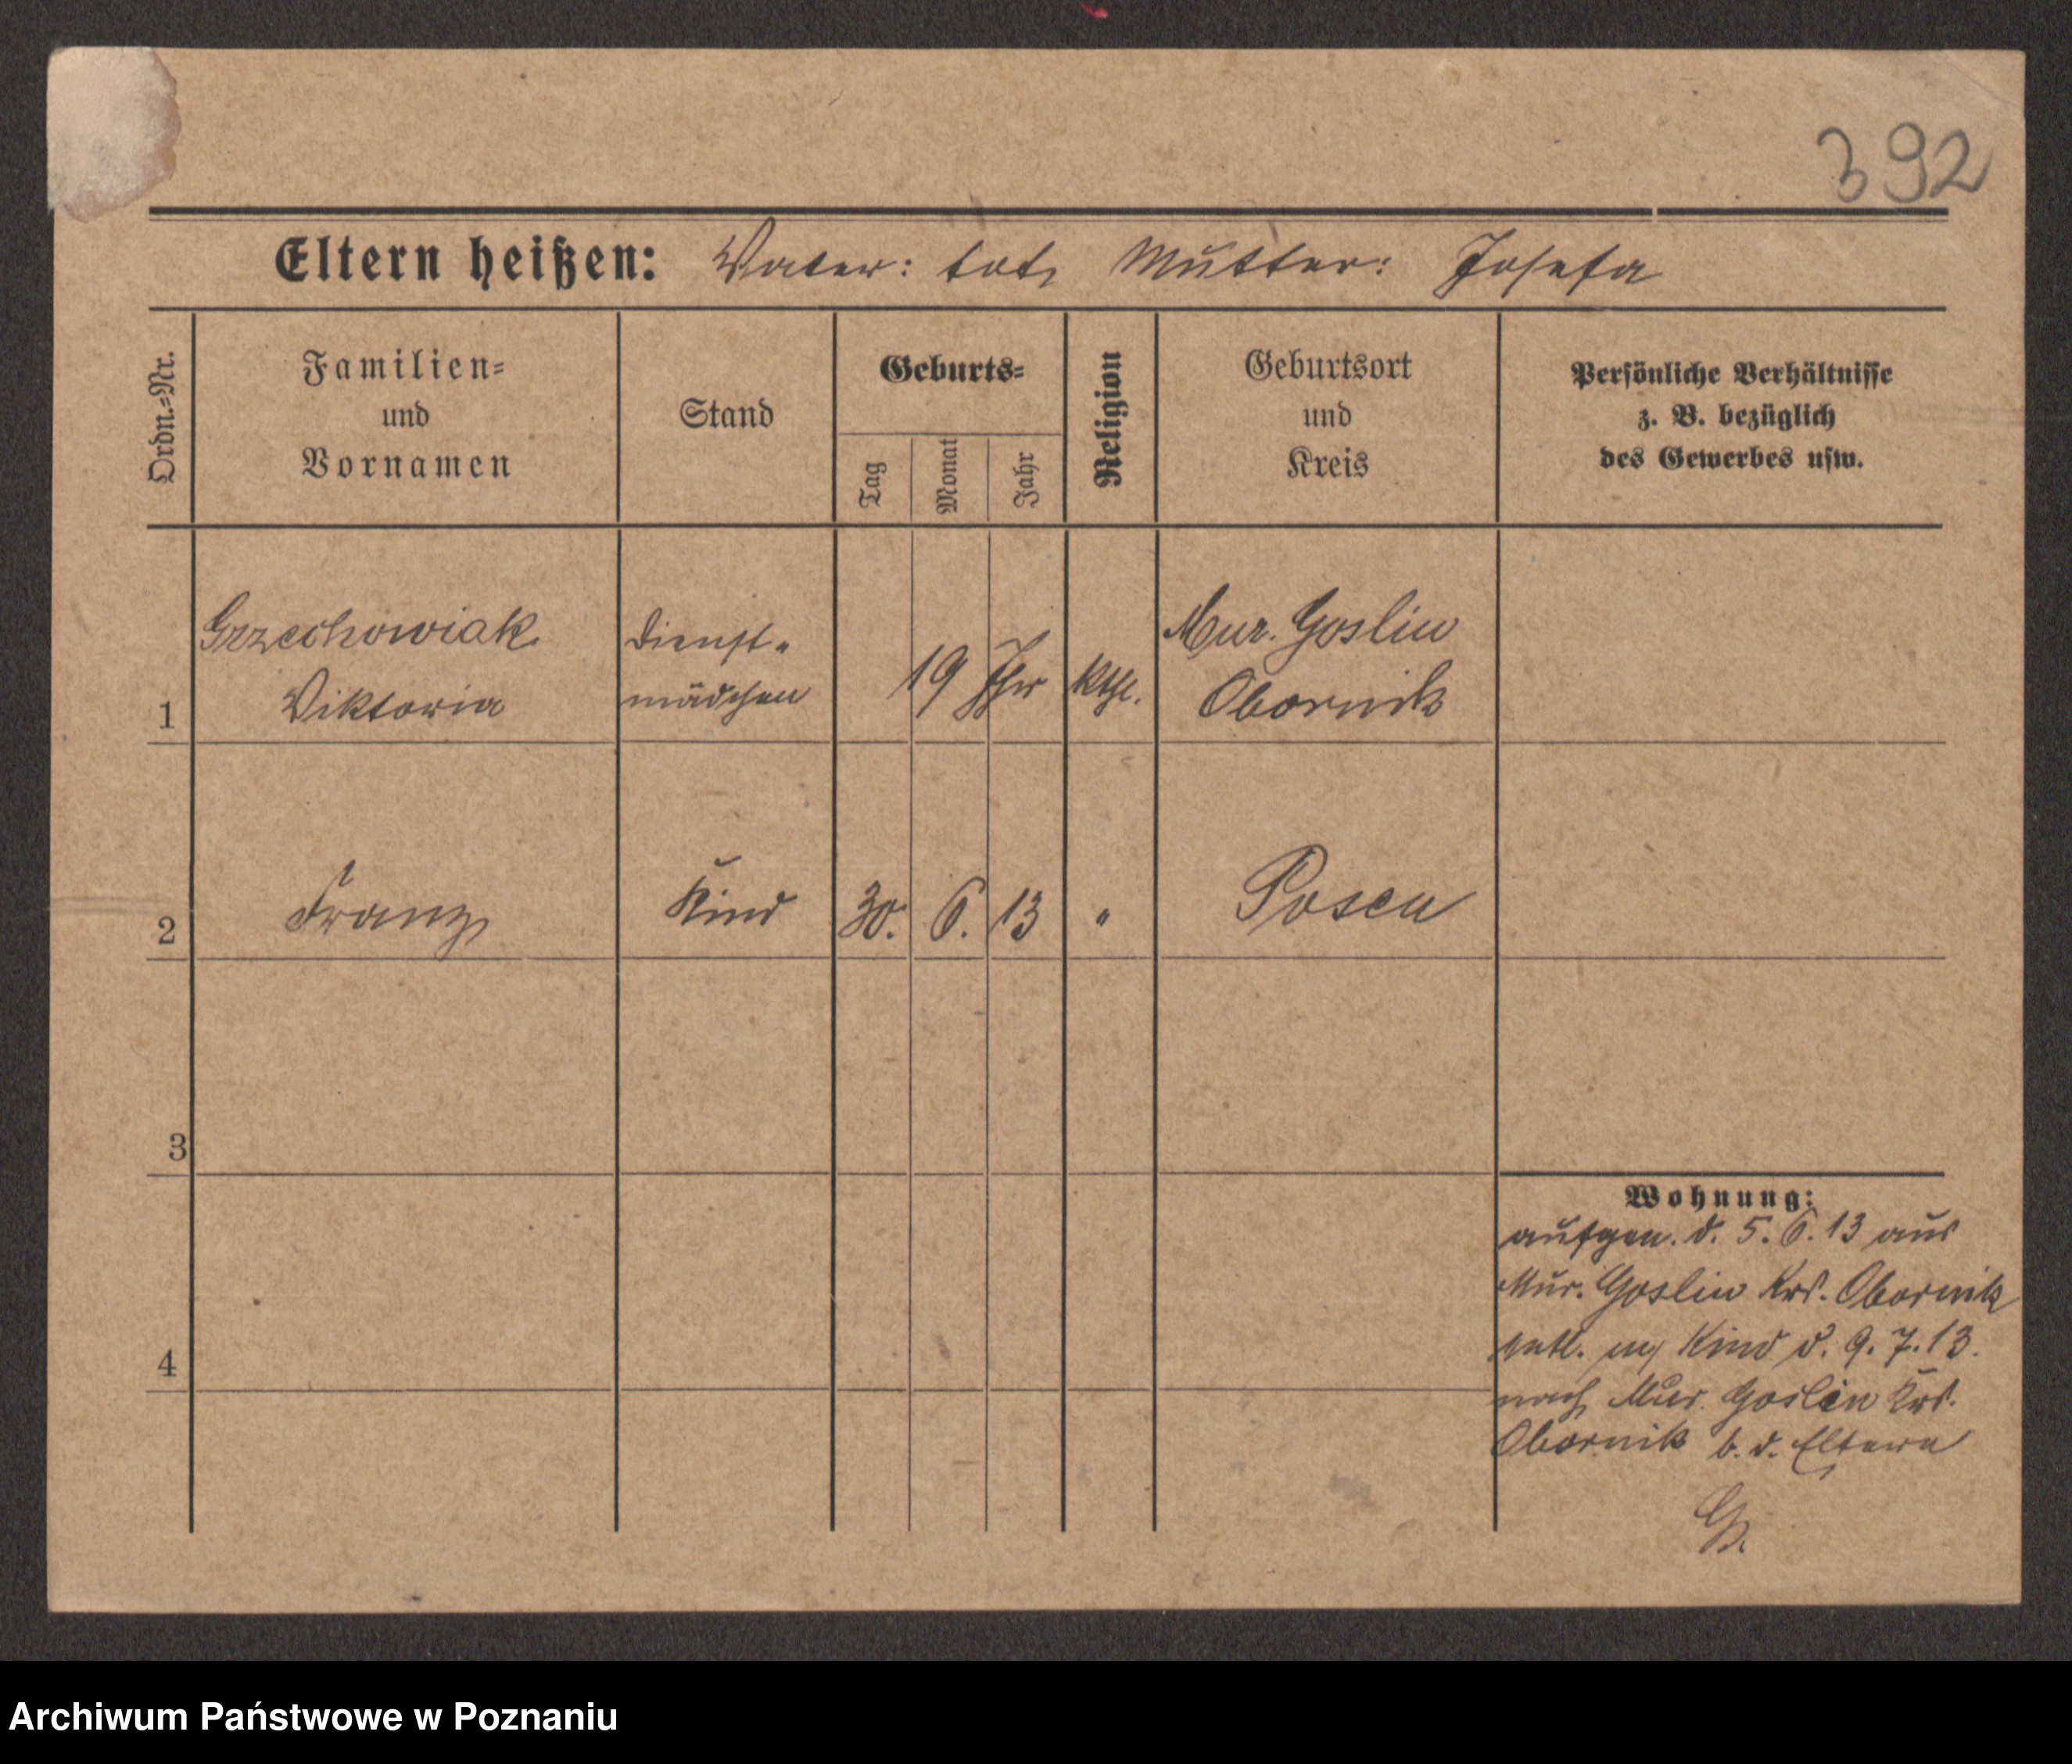 392
Eltern heißen: Vater: tot, Mutter: Josefa
Ordn.-Nr.
Familien-
und
Vornamen
Stand
Geburts-
Tag
Monat
Jahr
Religion
Geburtsort
und
Kreis
Persönliche Verhältnisse
z. B. bezüglich
des Gewerbes usw.
1
Grzechowiak
Viktoria
Dienst-
mädchen
19 Jhr
kthl.
Mur. Goslin
Obornik
2
Franz
Kind
30. 6. 13
"
Posen
3
4
Wohnung:
aufgen. d. 5. 6. 13 aus
Mur. Goslin Krs. Obornik
entl. m/ Kind d. 9. 7. 13.
nach Mur. Goslin Krs.
Obornik b. d. Eltern
Archiwum Państwowe w Poznaniu